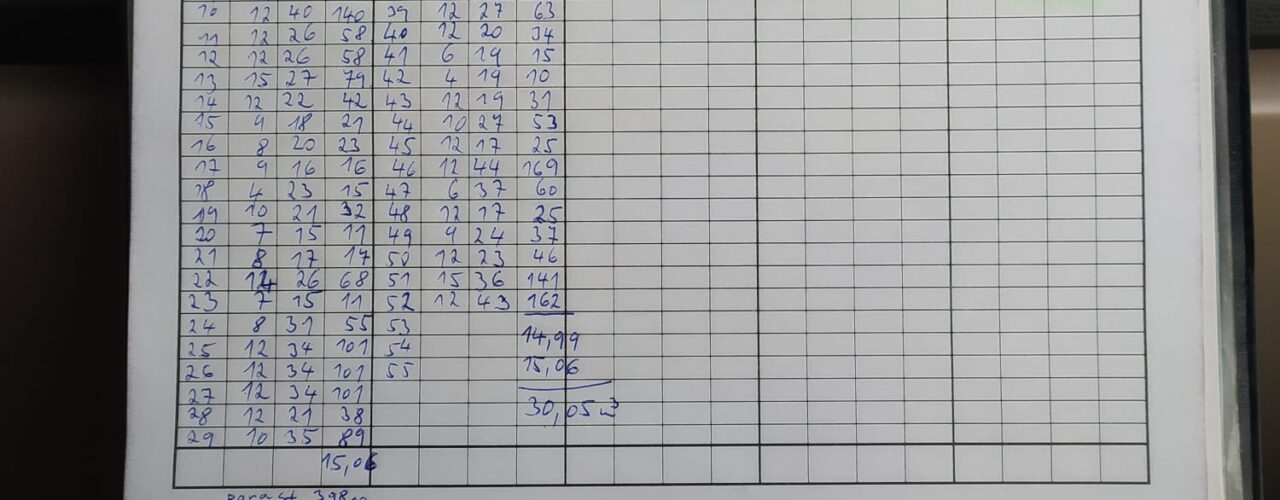 10 12 40 140 39 12 27 63
11 12 26 58 40 12 20 34
12 12 26 58 41 6 19 15
13 15 27 79 42 4 19 10
14 12 22 42 43 12 19 31
15 9 18 21 44 10 27 53
16 8 20 23 45 12 17 25
17 9 16 16 46 12 44 169
18 4 23 15 47 6 37 60
19 10 21 32 48 12 17 25
20 7 15 11 49 9 24 37
21 8 17 17 50 12 23 46
22 14 26 68 51 15 36 141
23 7 15 11 52 12 43 162
24 8 31 55 53
14,99
25 12 34 101 54
26 12 34 101 55 15,06
27 12 34 101
28 12 21 38 30,05 m³
29 10 35 89
15,06